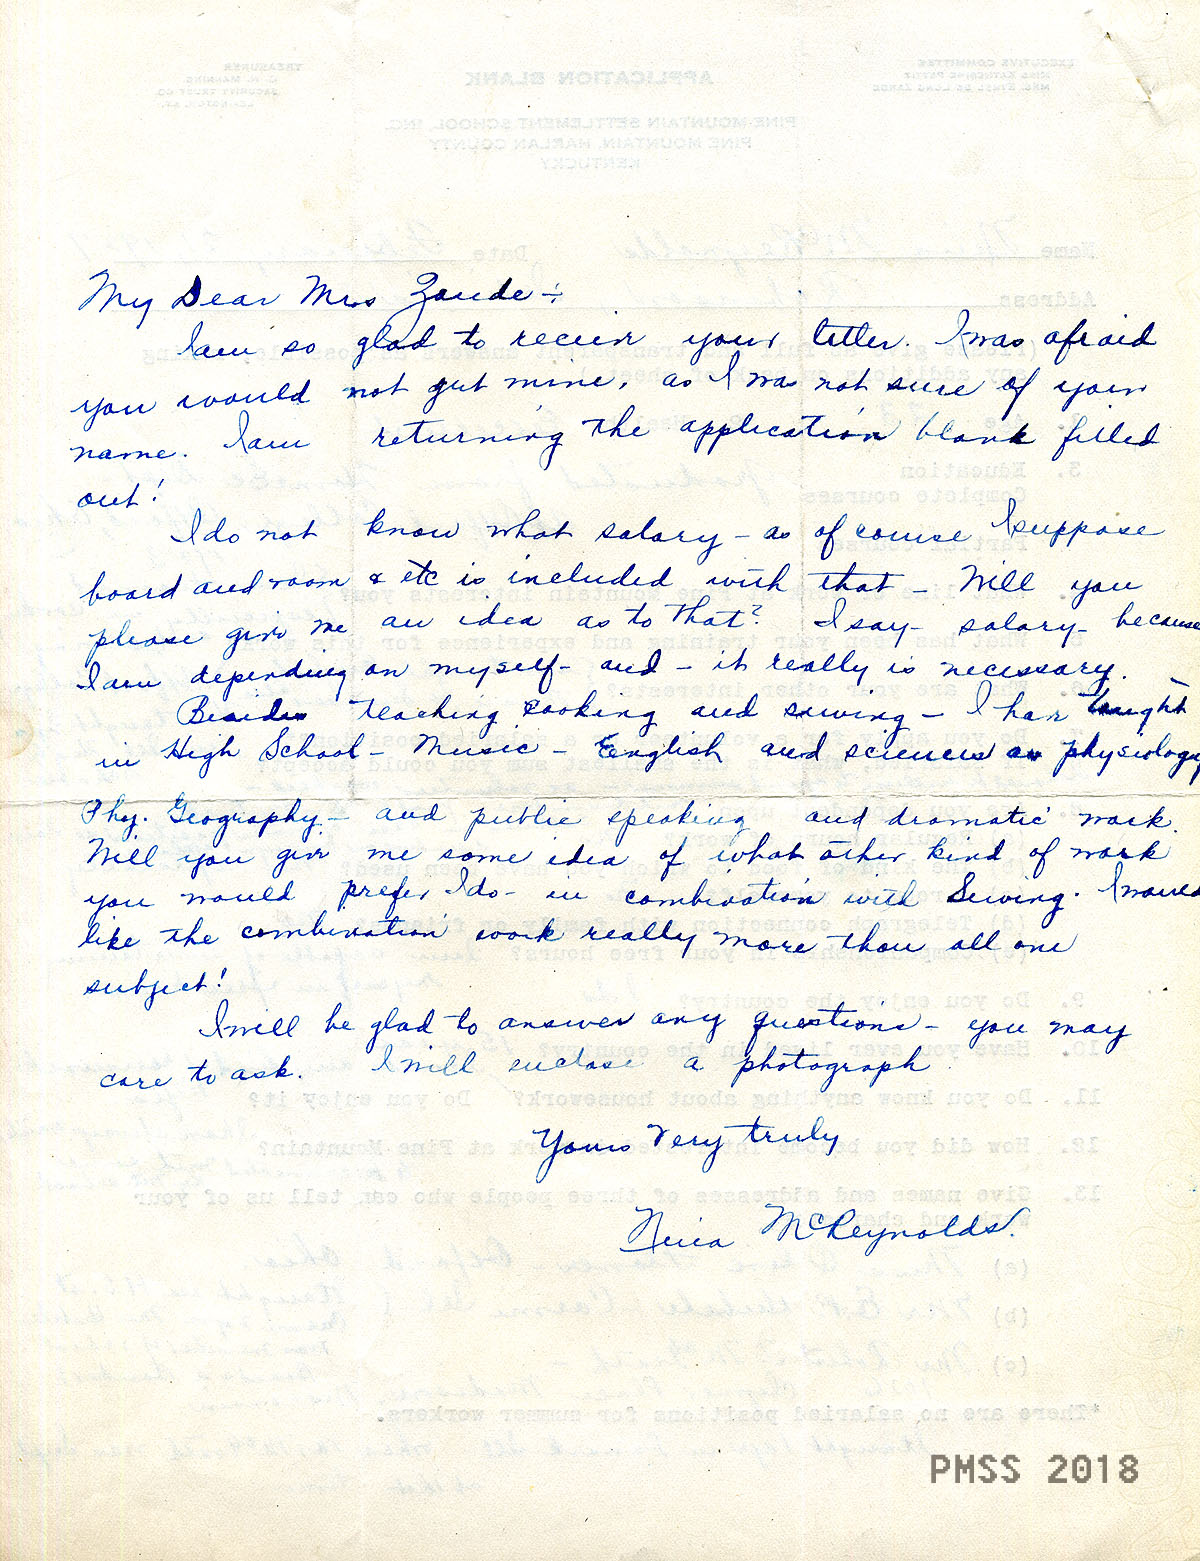 My Dear Mrs Zande -:
I am so glad to reciev your letter. I was afraid
you would not get mine, as I was not sure of your
name. I am returning the application blank filled
out!
I do not know what salary - as of course I suppose
board and room & etc is included with that - Will you
please give me an idea as to that? I say - salary - because
I am depending on myself - and - it really is necessary.
Besides teaching cooking and sewing - I have taught
in High School - Music - English and sciences as physiology
Phy. Geography - and public speaking and dramatic work.
Will you give me some idea of what other kind of work
you would prefer I do - in combination with Sewing. I would
like the combination work really more than all one
subject!
I will be glad to answer any questions - you may
care to ask. I will enclose a photograph.
Yours Very truly
McReynolds.
PMSS 2018